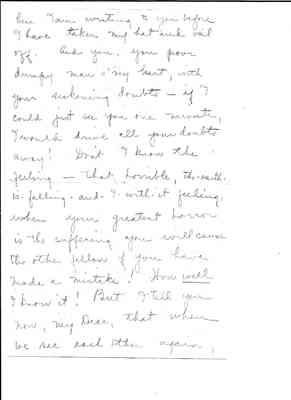 here I am writing to you before
I have taken my hat and veil
off. And you, you poor
dumpy man o' my heart, with
your sickening doubts — if I
could just see you one minute,
I would drive all your doubts
away! Don't I know the
feeling — that horrible, the-earth-
is-falling-and-I-with-it feeling,
when your greatest horror
is the suffering you will cause
the other fellow if you have
made a mistake! How well
I know it! But I tell you
now, my Dear, that when
we see each other again,